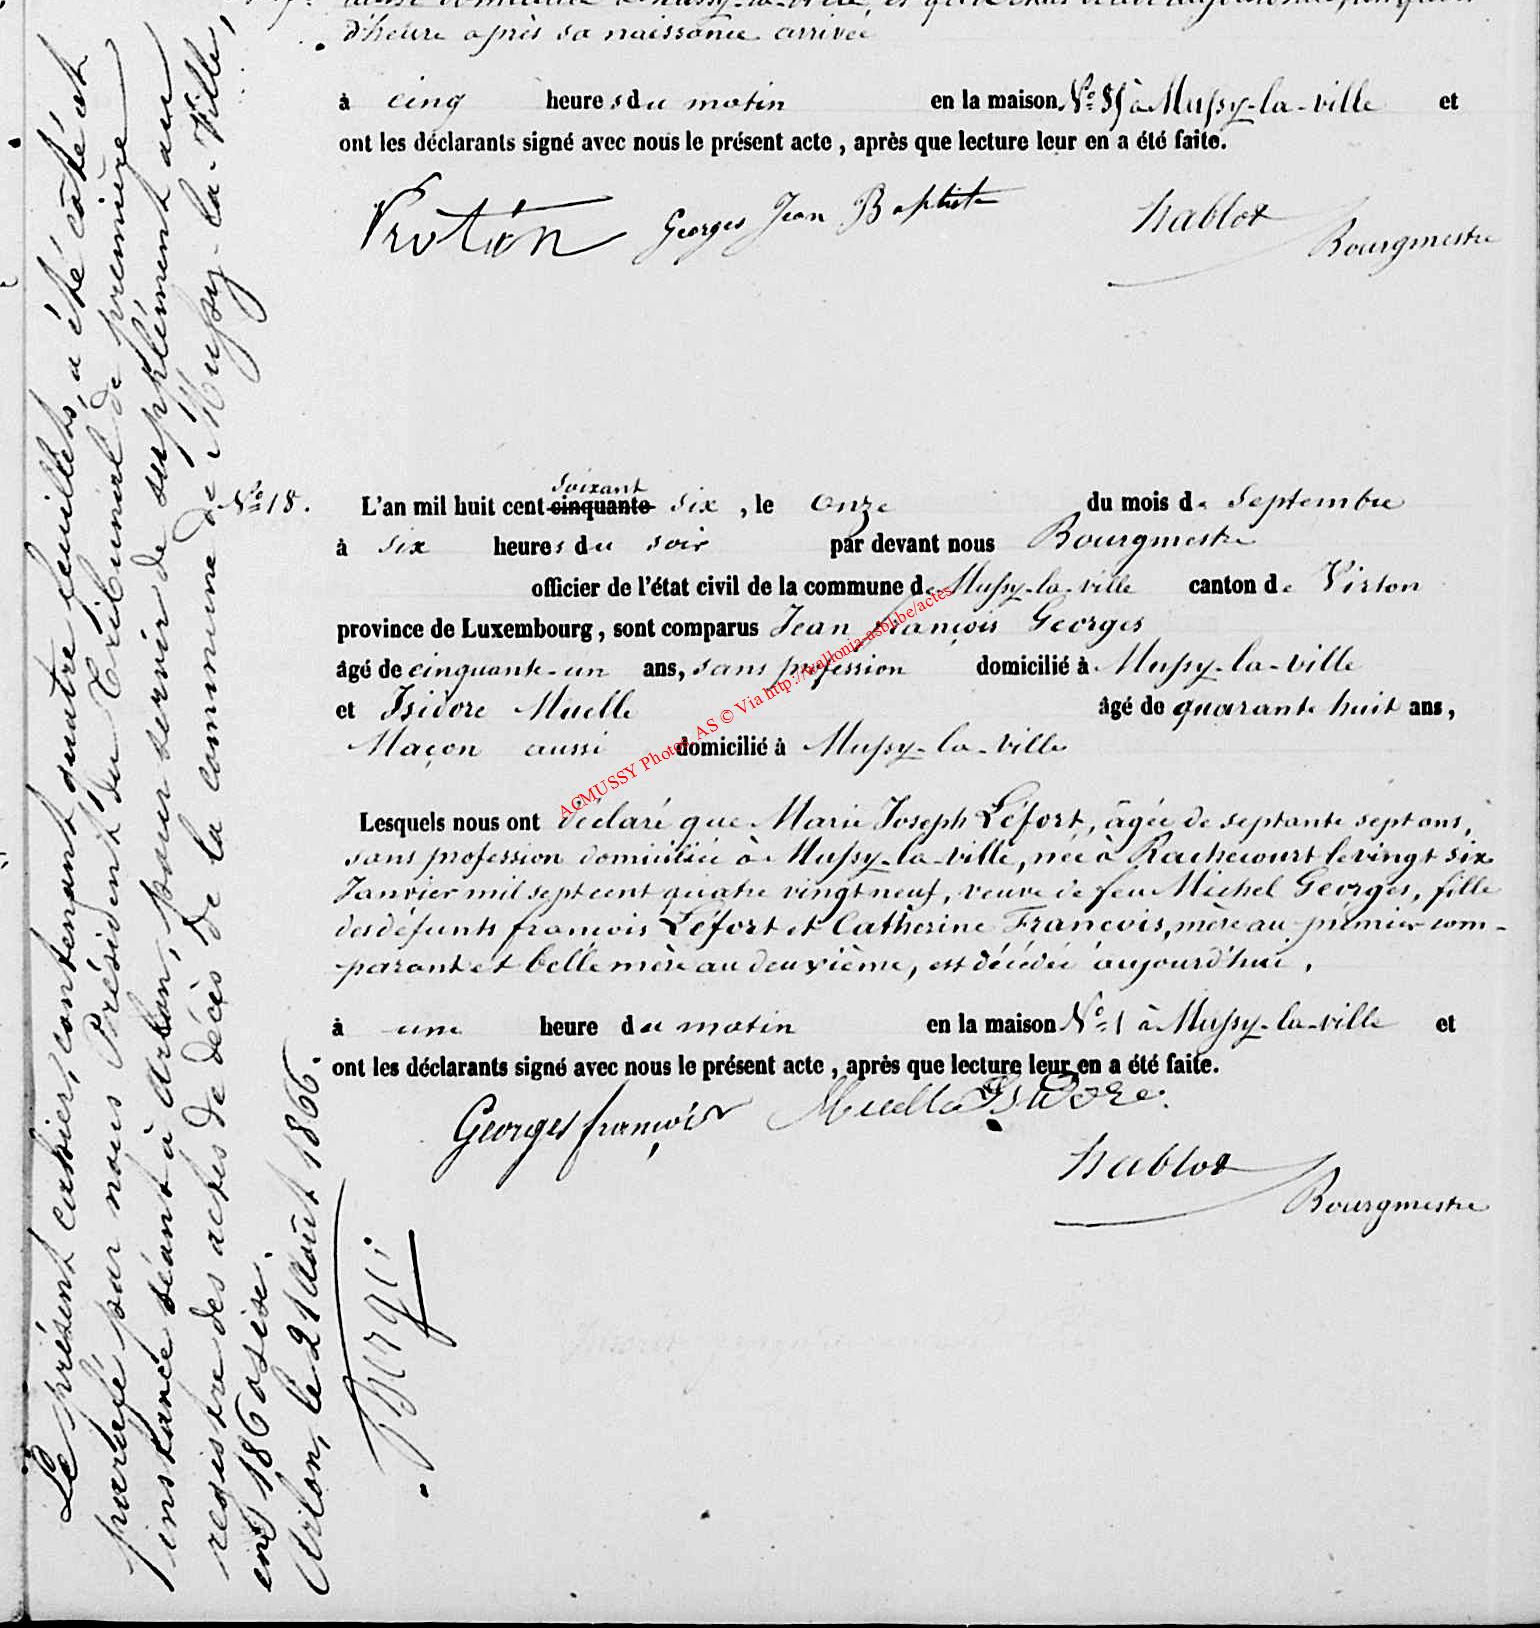 d'heure après sa naissance arrivée
à cinq heures du matin en la maison N° 85 à Mussy-la-ville et
ont les déclarants signé avec nous le présent acte, après que lecture leur en a été faite.
Georges Jean Baptiste
Hablot
Bourgmestre
N° 18.
soixant
L'an mil huit cent cinquante six, le onze du mois de Septembre
à six heures du soir par devant nous Bourgmestre
officier de l'état civil de la commune de Mussy-la-ville canton de Virton
province de Luxembourg, sont comparus Jean François Georges
âgé de cinquante-un ans, sans profession domicilié à Mussy-la-ville
et Isidore Muelle âgé de quarante huit ans,
Maçon aussi domicilié à Mussy-la-ville
ACMUSSY Photos AS © Via http://wallonia-asbl.be/actes
Lesquels nous ont déclaré que Marie Joseph Léfort, âgée de septante sept ans,
sans profession domiciliée à Mussy-la-ville, née à Rachecourt le vingt six
Janvier mil sept cent quatre vingt neuf, veuve de feu Michel Georges, fille
des défunts françois Léfort et Catherine François, mère au prémier com-
-parant et belle mère au deuxième, est décédée aujourd'hui,
à une heure du matin en la maison N° 1 à Mussy-la-ville et
ont les déclarants signé avec nous le présent acte, après que lecture leur en a été faite.
Georges françois Muelle Isidore.
Hablot
Bourgmestre
Le présent cahier, contenant quatre feuillets, a été côté et
parafé par nous Président du Tribunal de première
instance séant à Arlon, pour servir de supplément au
registre des actes de décès de la commune de Mussy-la-Ville,
en 1860 six.
Arlon, le 21 Août 1866.